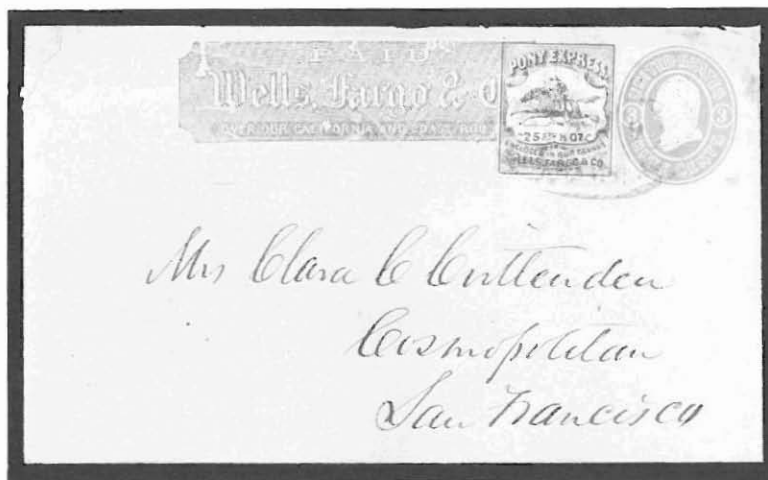 PAID
Wells, Fargo & C
OVER OUR CALIFORNIA AND COAST ROU
PONY EXPRESS.
25
ENCLOSED IN OUR FRANKS
WELLS, FARGO & CO.
3 3
Mrs Clara C Crittenden
Cosmopolitan
San Francisco